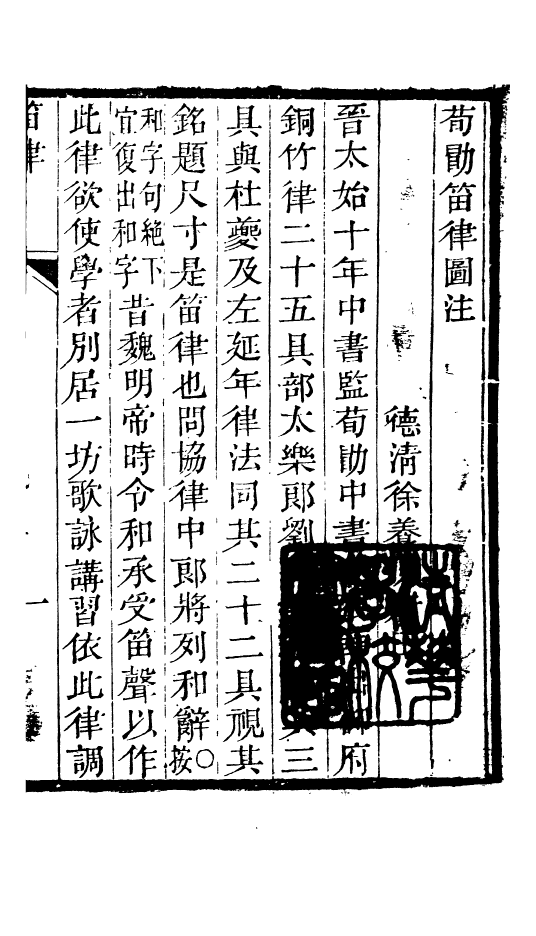 荀勖笛律圖注
德清徐養
晉太始十年中書監荀勖中書府
銅竹律二十五具部太樂郎劉三
具與杜夔及左延年律法同其二十二具視其
銘題尺寸是笛律也問協律中郎將列和辭〇按
和字句絶下
宜復出和字昔魏明帝時令和承受笛聲以作
此律欲使學者別居一坊歌詠講習依此律調
笛律
一